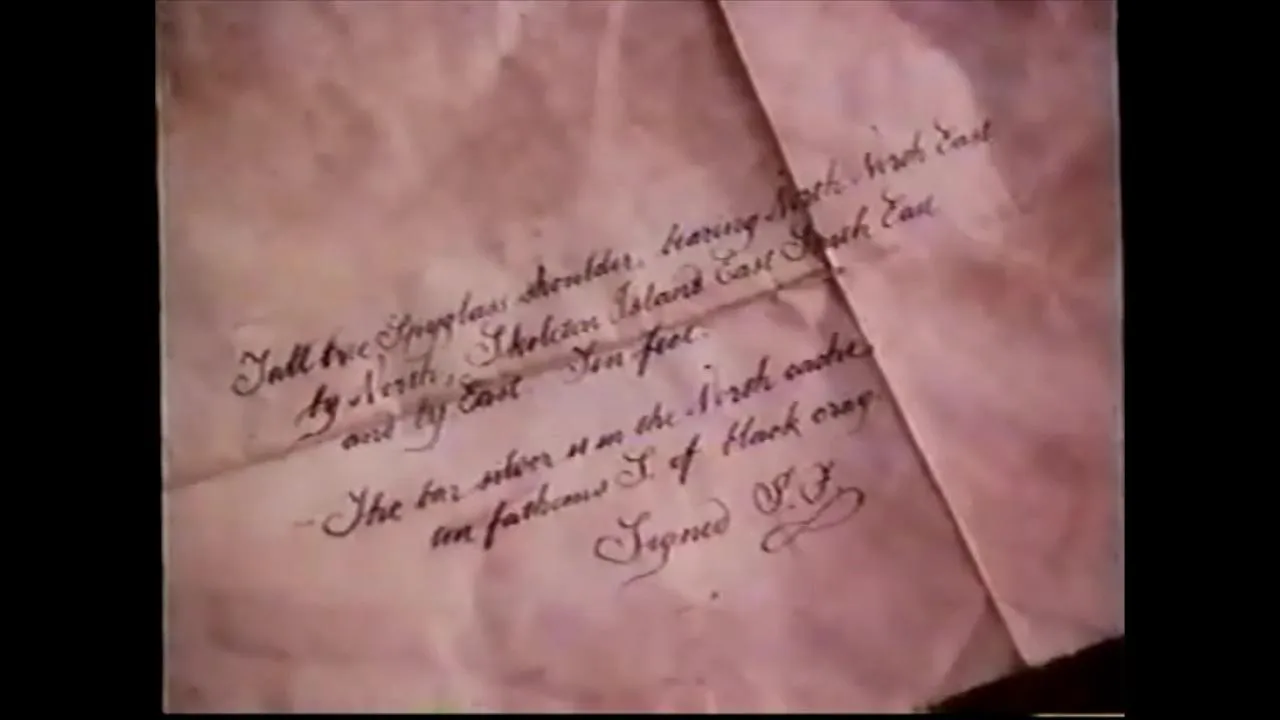 Tall tree Spyglass shoulder, bearing North North East
by North, Skeleton Island East South East
and by East. Ten feet.
- The bar silver is in the North cache,
ten fathoms S. of black crag.
Signed J.F.